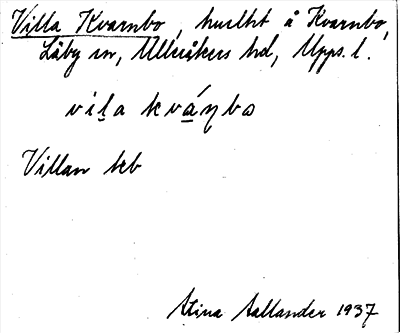 Villa Kvarnbo, huslht å Kvarnbo,
Läby sn, Ulleråkers hd, Upps. l.
vil̲a kvá̲ṇbo
Villan kb
Stina Aallander 1937